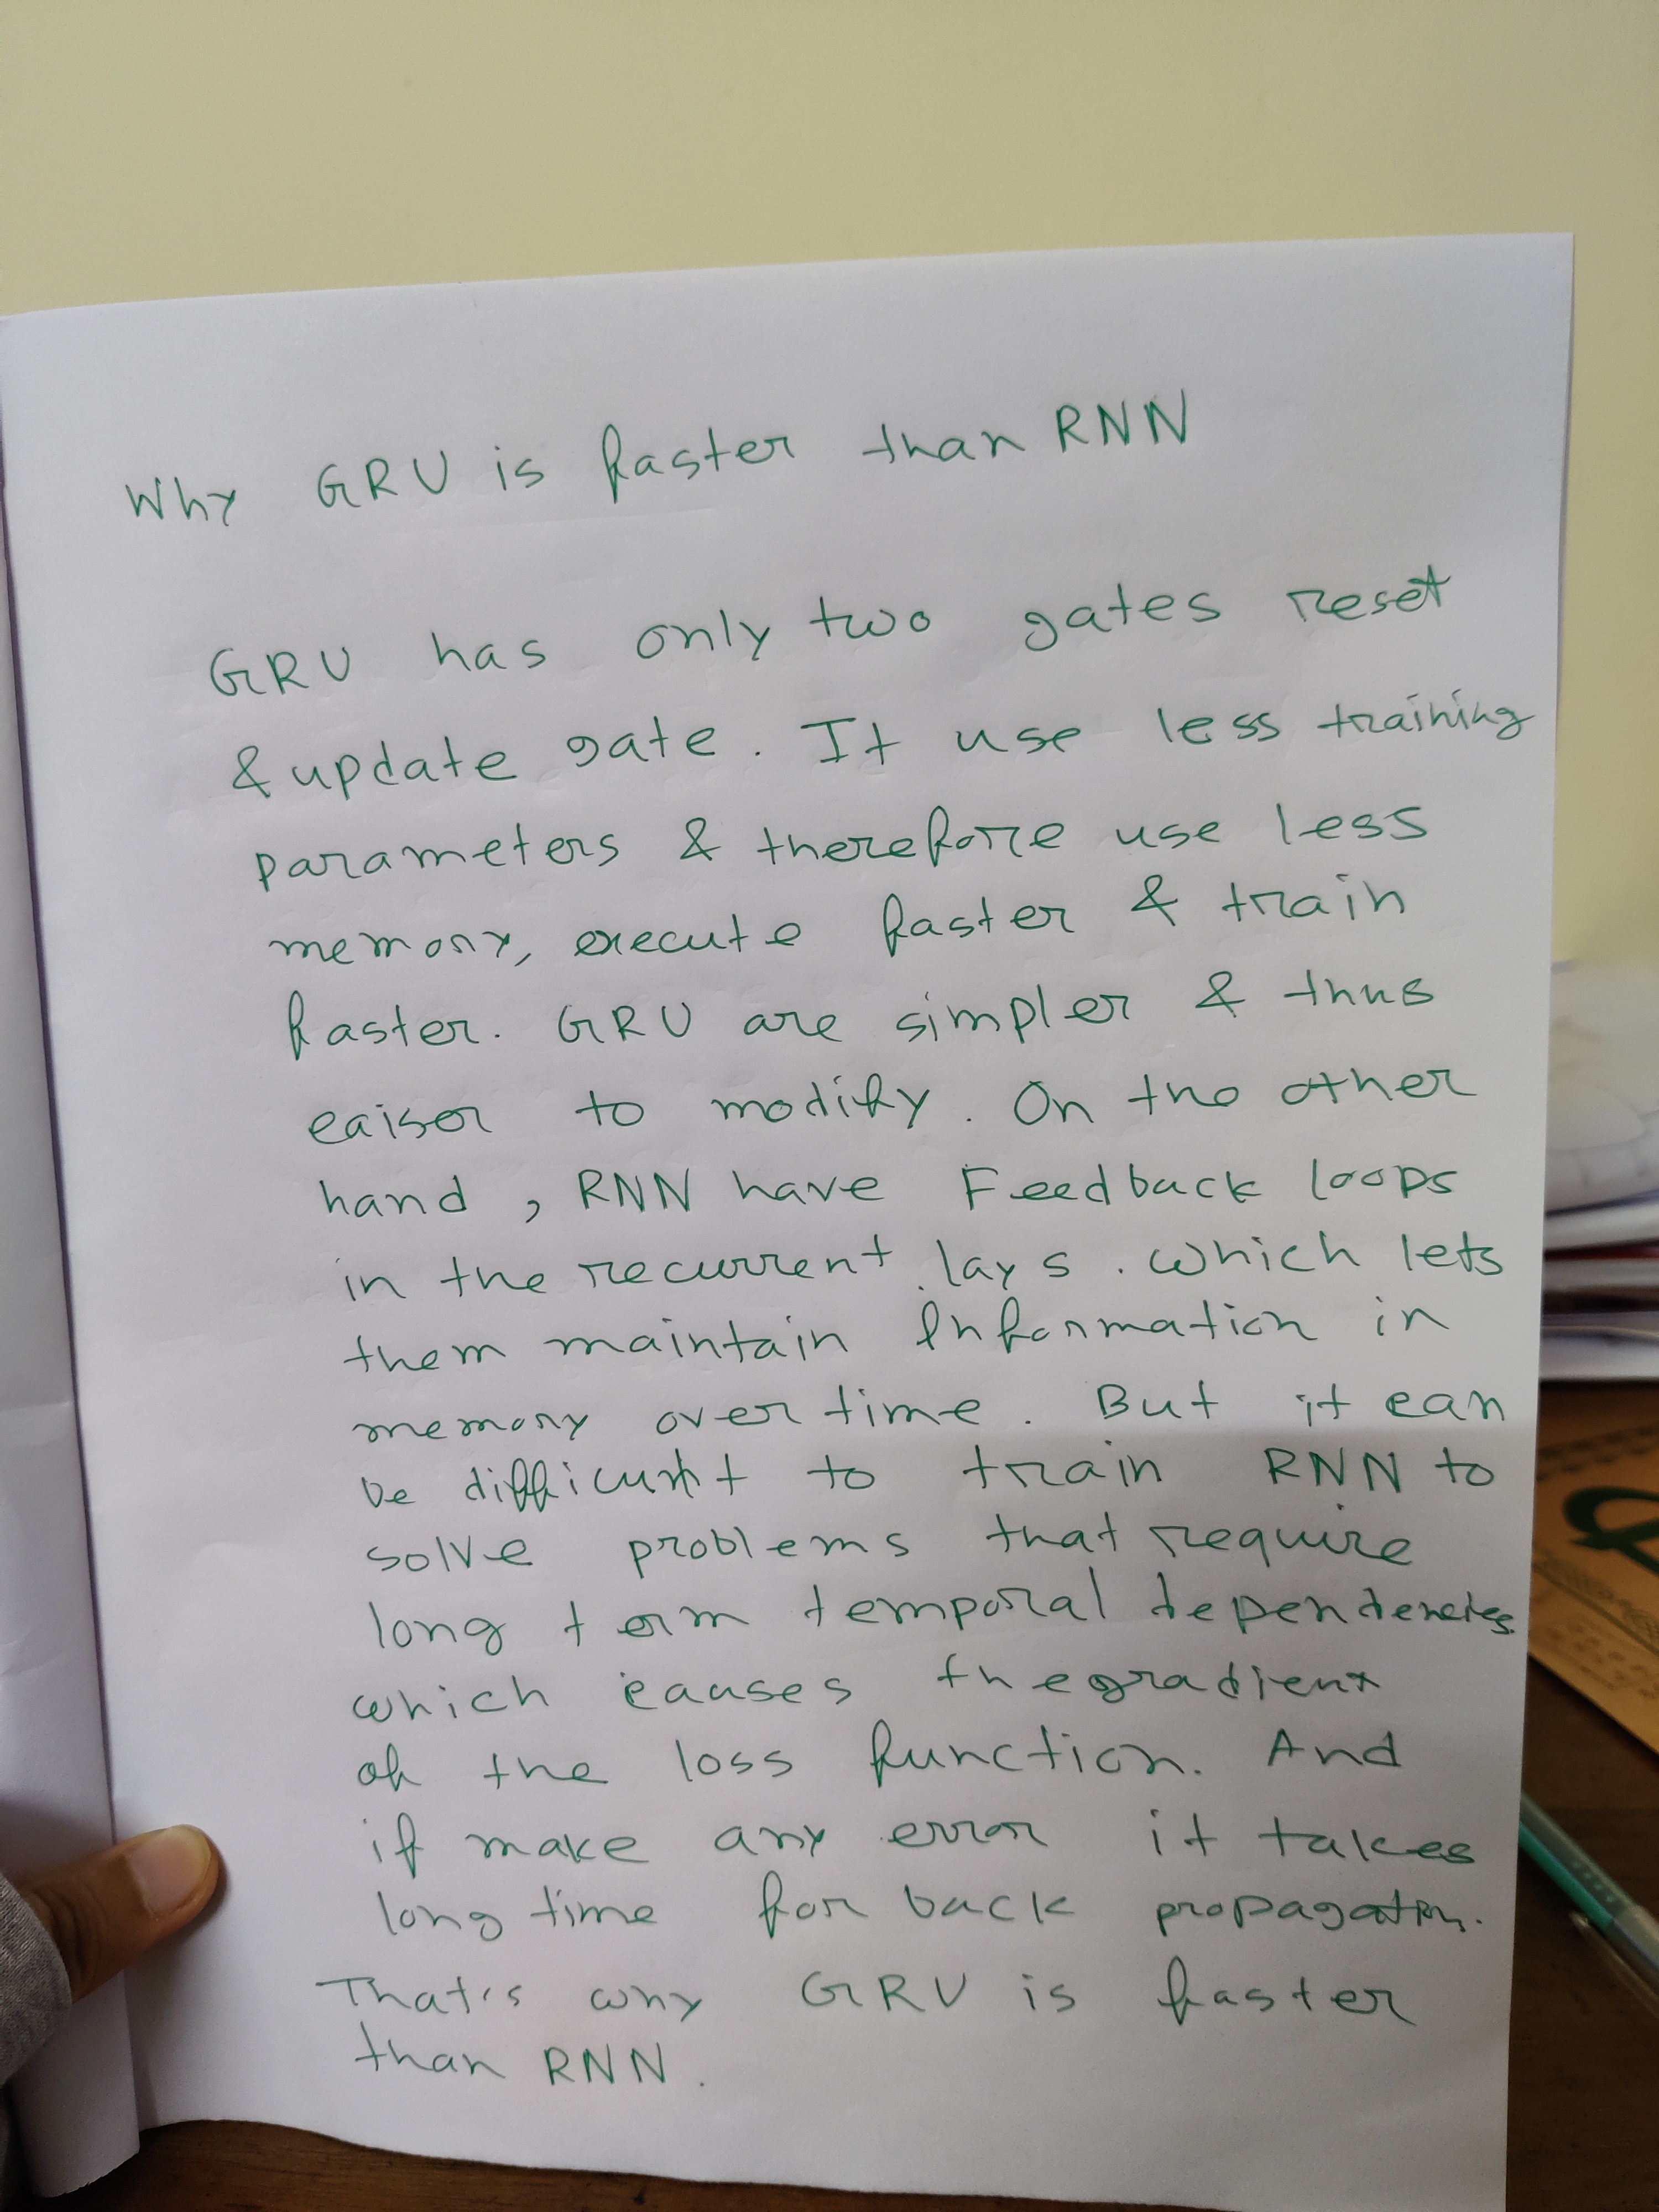 Why GRU is faster than RNN
GRU has only two gates reset
& update gate. It use less training
parameters & therefore use less
memory, execute faster & train
faster. GRU are simpler & thus
eaiser to modify. On the other
hand, RNN have Feedback loops
in the recurrent lays. which lets
them maintain Information in
memory over time. But it can
be difficult to train RNN to
solve problems that require
long term temporal dependencies
which causes the gradient
of the loss function. And
if make any error it takes
long time for back propagation.
That's why GRU is faster
than RNN.